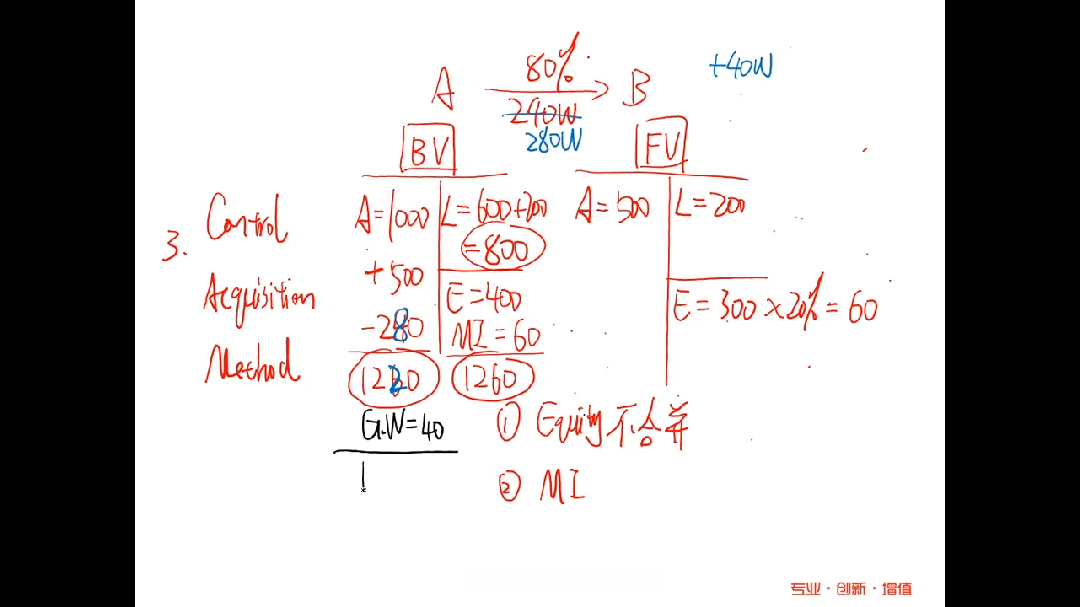 80%
+40W
A B
240W
280W
BV FV
Control A=1000 L=600+200 A=500 L=200
3. =800
+500
Acquisition E=400 E=300×20%=60
-280 MI=60
Method 1220 1260
G.W=40 ① Equity不合并
② MI
专业·创新·增值